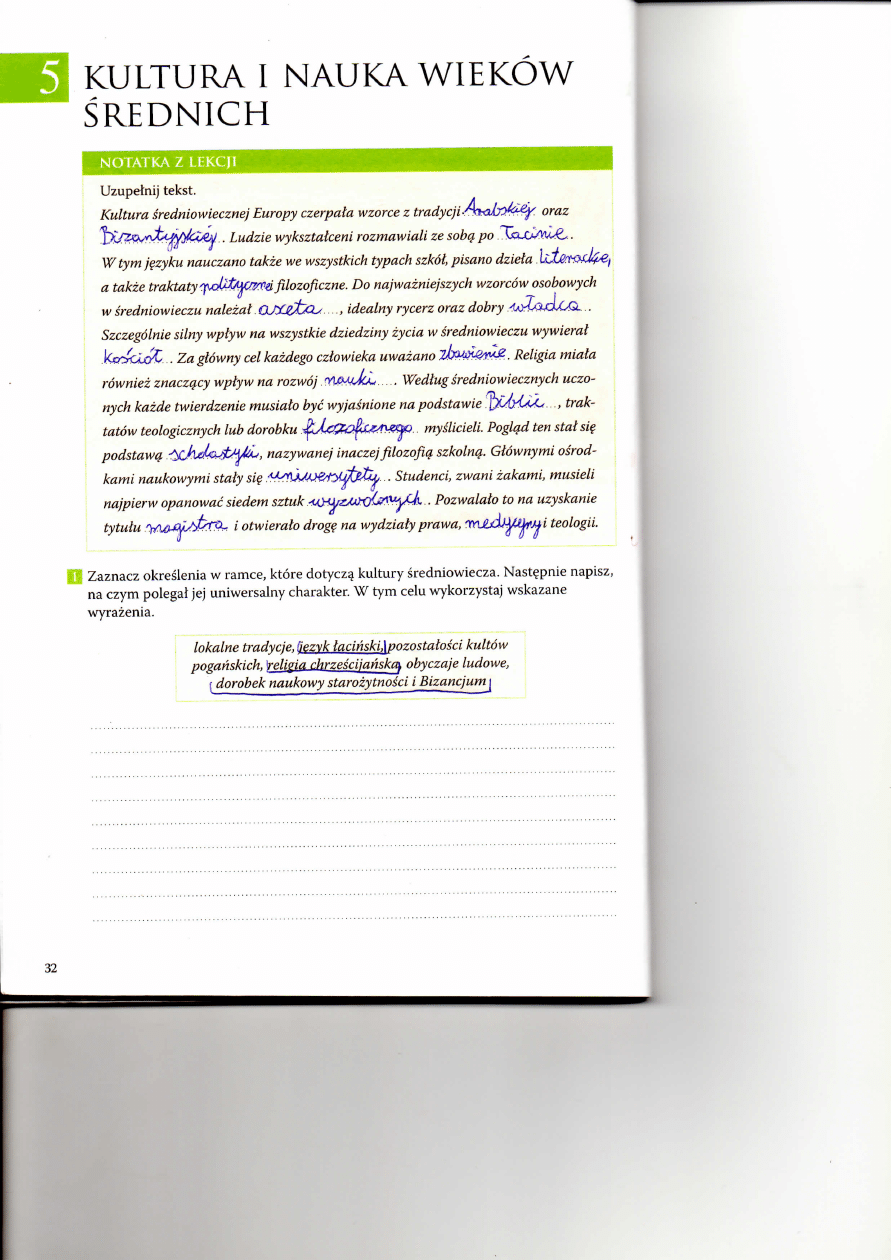 5 KULTURA I NAUKA WIEKÓW
ŚREDNICH
NOTATKA Z LEKCJI
Uzupełnij tekst.
Kultura średniowiecznej Europy czerpała wzorce z tradycji Arabskiej oraz
Bizantyjskiej. Ludzie wykształceni rozmawiali ze sobą po łacinie.
W tym języku nauczano także we wszystkich typach szkół, pisano dzieła literackie,
a także traktaty polityczne i filozoficzne. Do najważniejszych wzorców osobowych
w średniowieczu należał asceta, idealny rycerz oraz dobry władca.
Szczególnie silny wpływ na wszystkie dziedziny życia w średniowieczu wywierał
kościół. Za główny cel każdego człowieka uważano zbawienie. Religia miała
również znaczący wpływ na rozwój nauki. Według średniowiecznych uczo-
nych każde twierdzenie musiało być wyjaśnione na podstawie Biblii, trak-
tatów teologicznych lub dorobku filozoficznego myślicieli. Pogląd ten stał się
podstawą scholastyki, nazywanej inaczej filozofią szkolną. Głównymi ośrod-
kami naukowymi stały się uniwersytety. Studenci, zwani żakami, musieli
najpierw opanować siedem sztuk wyzwolonych. Pozwalało to na uzyskanie
tytułu magistra i otwierało drogę na wydziały prawa, medycyny i teologii.
1 Zaznacz określenia w ramce, które dotyczą kultury średniowiecza. Następnie napisz,
na czym polegał jej uniwersalny charakter. W tym celu wykorzystaj wskazane
wyrażenia.
lokalne tradycje, język łaciński, pozostałości kultów
pogańskich, religia chrześcijańska, obyczaje ludowe,
dorobek naukowy starożytności i Bizancjum
32